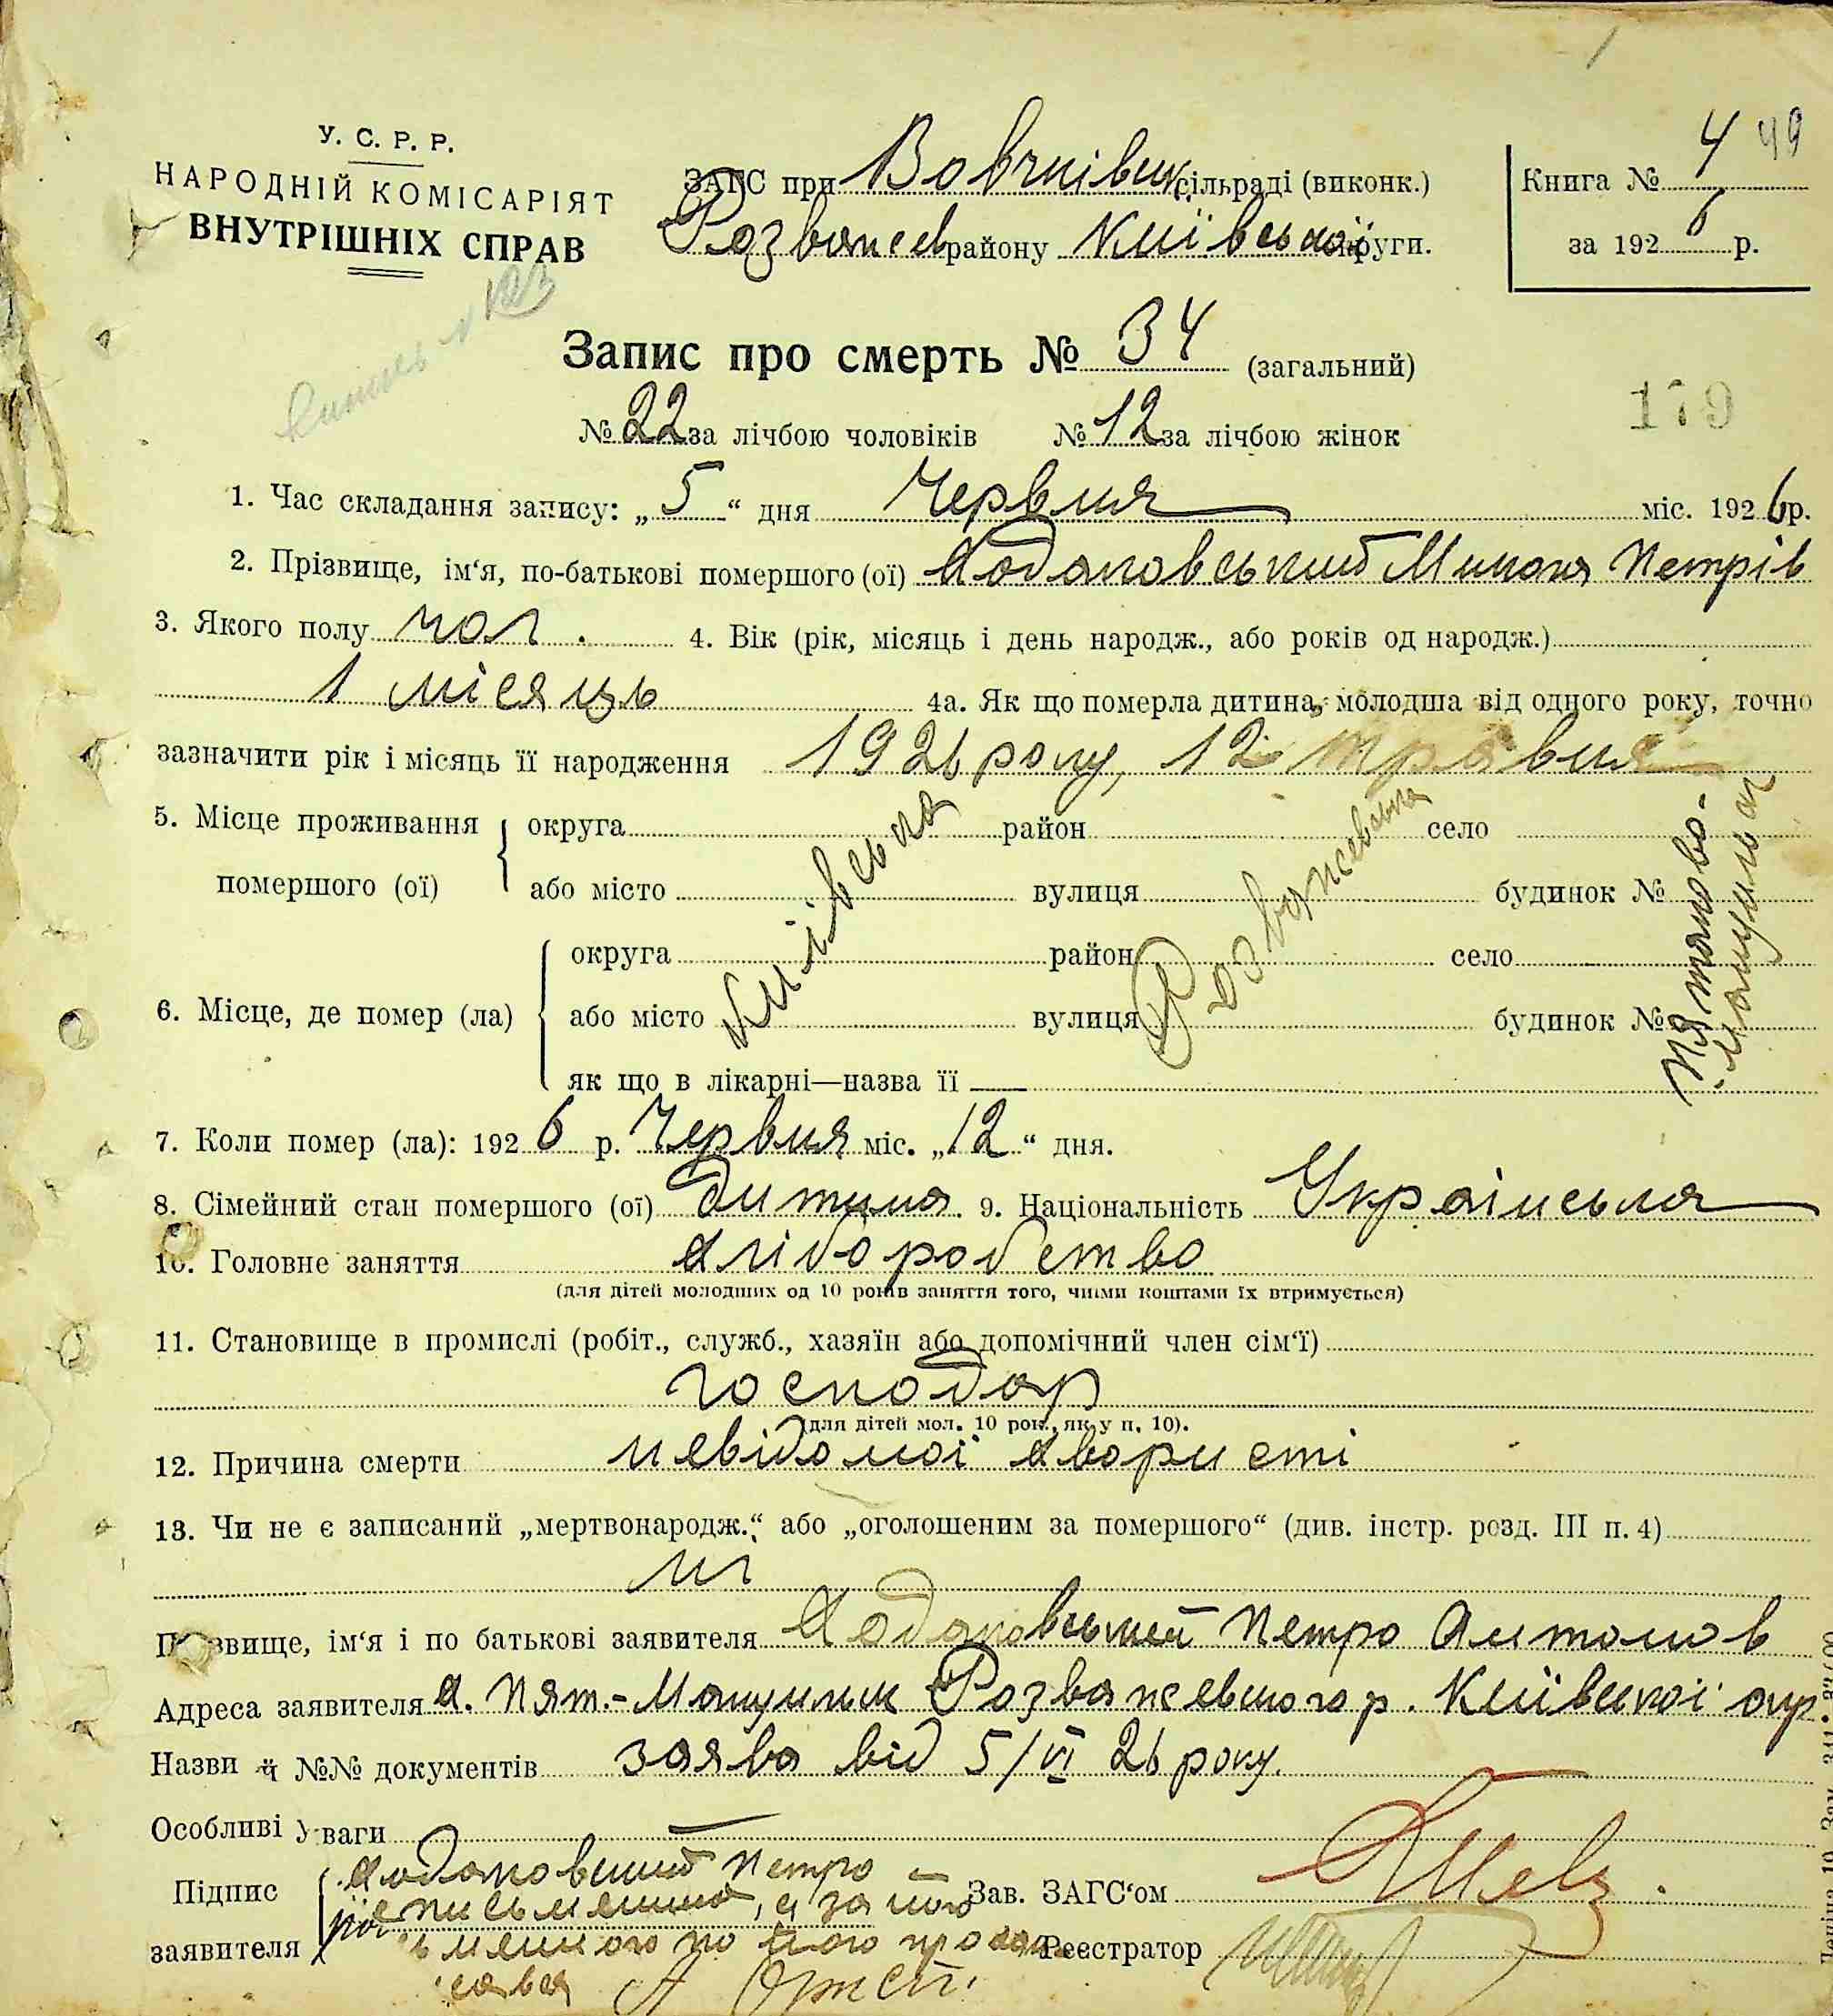 У. С. Р. Р.
НАРОДНІЙ КОМІСАРІЯТ
ВНУТРІШНІХ СПРАВ
ЗАГС при Вовчківськ. сільраді (виконк.)
Розважев району Київської округи.
Книга № 4 49
за 1926 р.
Запис про смерть № 34 (загальний)
179
№ 22 за лічбою чоловіків № 12 за лічбою жінок
1. Час складання запису: „5“ дня Червня міс. 1926 р.
2. Прізвище, ім‘я, по-батькові помершого (ої) Ходаковський Микола Петрів
3. Якого полу чол. 4. Вік (рік, місяць і день народж., або років од народж.)
1 місяць 4а. Як що померла дитина, молодша від одного року, точно
зазначити рік і місяць її народження 1926 року, 12 травня
5. Місце проживання помершого (ої) округа район село
або місто вулиця будинок №
Київська Розважевська
6. Місце, де помер (ла) округа район село
або місто вулиця будинок №
як що в лікарні—назва її —
7. Коли помер (ла): 1926 р. Червня міс. „12“ дня.
8. Сімейний стан помершого (ої) дитина 9. Національність Українська
10. Головне заняття хліборобство
(для дітей молодших од 10 років заняття того, чиїми коштами їх втримується)
11. Становище в промислі (робіт., служб., хазяїн або допомічний член сім‘ї)
господар
(для дітей мол. 10 рок., як у п. 10).
12. Причина смерти невідомої хвористі
13. Чи не є записаний „мертвонародж.“ або „оголошеним за помершого“ (див. інстр. розд. III п. 4)
ні
Прізвище, ім‘я і по батькові заявителя Ходаковський Петро Антонов
Адреса заявителя х. Пят.-Мацильск Розважевського р. Київської окр.
Назви й №№ документів заява від 5/VI 26 року.
Особливі уваги —
Підпис заявителя Ходаковський Петро
неписьменний, а за його
Зав. ЗАГС‘ом
Реєстратор